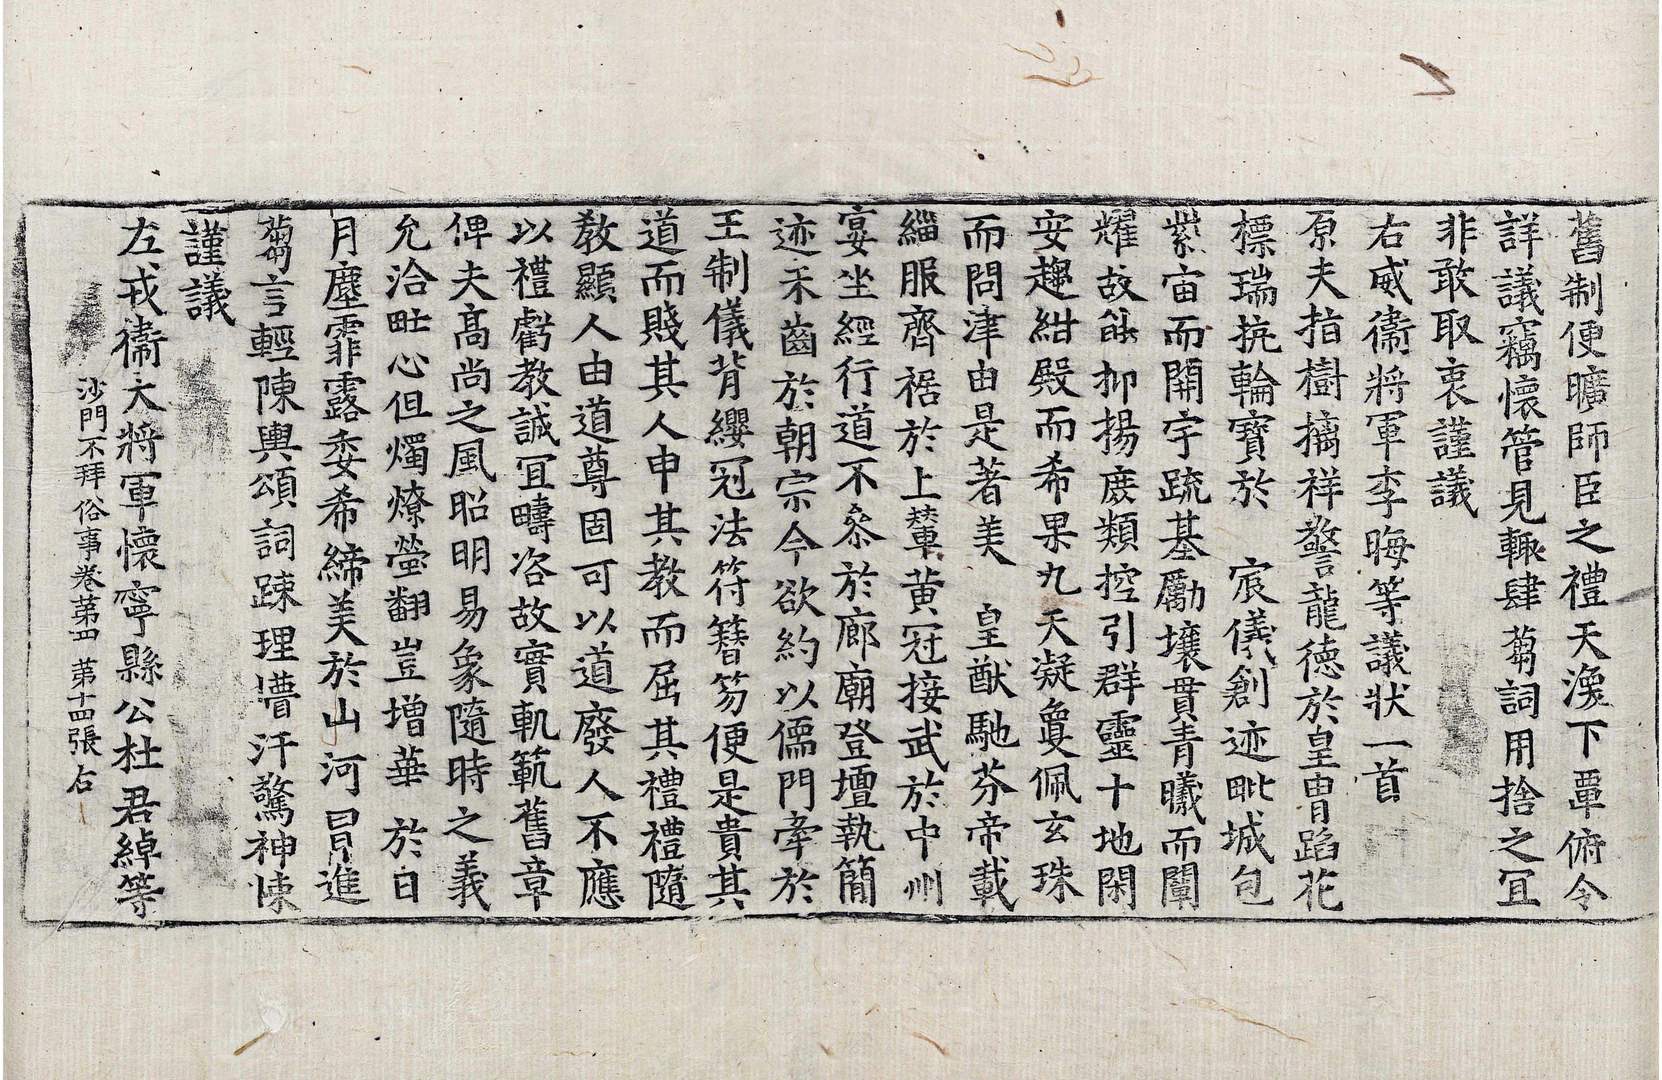 舊制便曠師臣之禮天渙下覃俯令
詳議竊懷管見輙肆芻詞用捨之冝
非敢取衷謹議
右威衞將軍李晦等議狀一首
原夫指樹摛祥警龍德於皇胄蹈花
標瑞抗輪寶於 宸儀創迹毗城包
紫宙而開宇疏基勵壤貫青曦而闡
耀故能抑揚庶類控引群靈十地閑
安趨紺殿而希果九天凝敻佩玄珠
而問津由是著美 皇猷馳芬帝載
緇服齊裾於上輦黃冠接武於中州
宴坐經行道不叅於廊廟登壇執簡
迹未齒於朝宗今欲約以儒門牽於
王制儀背纓冠法符簪笏便是貴其
道而賤其人申其教而屈其禮禮隨
教顯人由道尊固可以道廢人不應
以禮虧教誠冝疇咨故實軌範舊章
俾夫高尚之風昭明易象隨時之義
允洽毗心但燭燎螢翻豈增華 於日
月塵霏露委希締美於山河冒進
蒭言輕陳輿頌詞疎理懵汗驚神悚
謹議
左戎衞大將軍懷寧縣公杜君綽等
沙門不拜俗事卷第四 第十四張 右